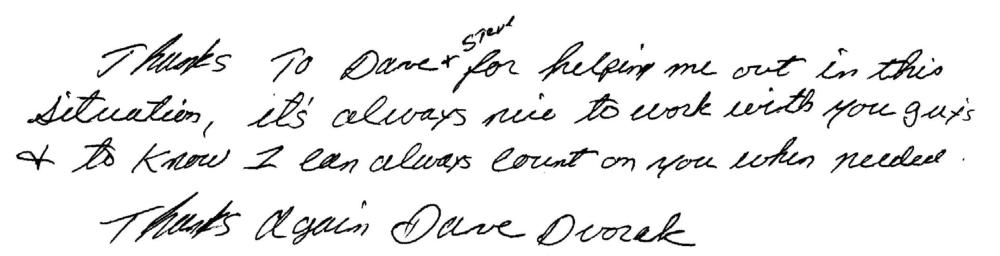 Thanks To Dave + Steve for helping me out in this
situation, it's always nice to work with you guys
& to know I can always count on you when needed.
Thanks Again Dave Dvorak